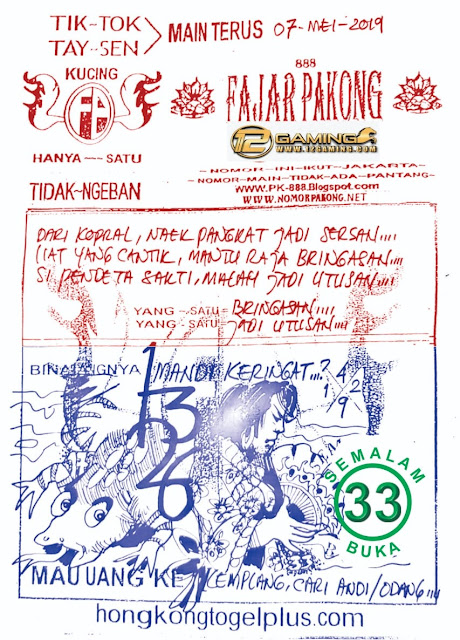 TIK-TOK
TAY-SEN
MAIN TERUS 07-MEI-2019
KUCING
FP
HANYA---SATU
TIDAK-NGEBAN
888
FAJAR PAKONG
12 GAMING
WWW.12GAMING.COM
- NOMOR-INI-IKUT-JAKARTA-
- NOMOR-MAIN-TIDAK-ADA-PANTANG-
www.PK-888.Blogspot.com
WWW.NOMORPAKONG.NET
DARI KOPRAL, NAEK PANGKAT JADI SERSAN....
LIAT YANG CANTIK, MANTU RAJA BRINGASAN....
SI PENDETA SAKTI, MALAH JADI UTUSAN....
YANG-SATU-BRINGASAN....
YANG-SATU-JADI UTUSAN....?
BINATANGNYA MANDI KERINGAT...?
4/2
1/9
1
3
2
6
SEMALAM
33
BUKA
MAU UANG KE KEMPLANG, CARI ANDI/ODANG....
hongkongtogelplus.com